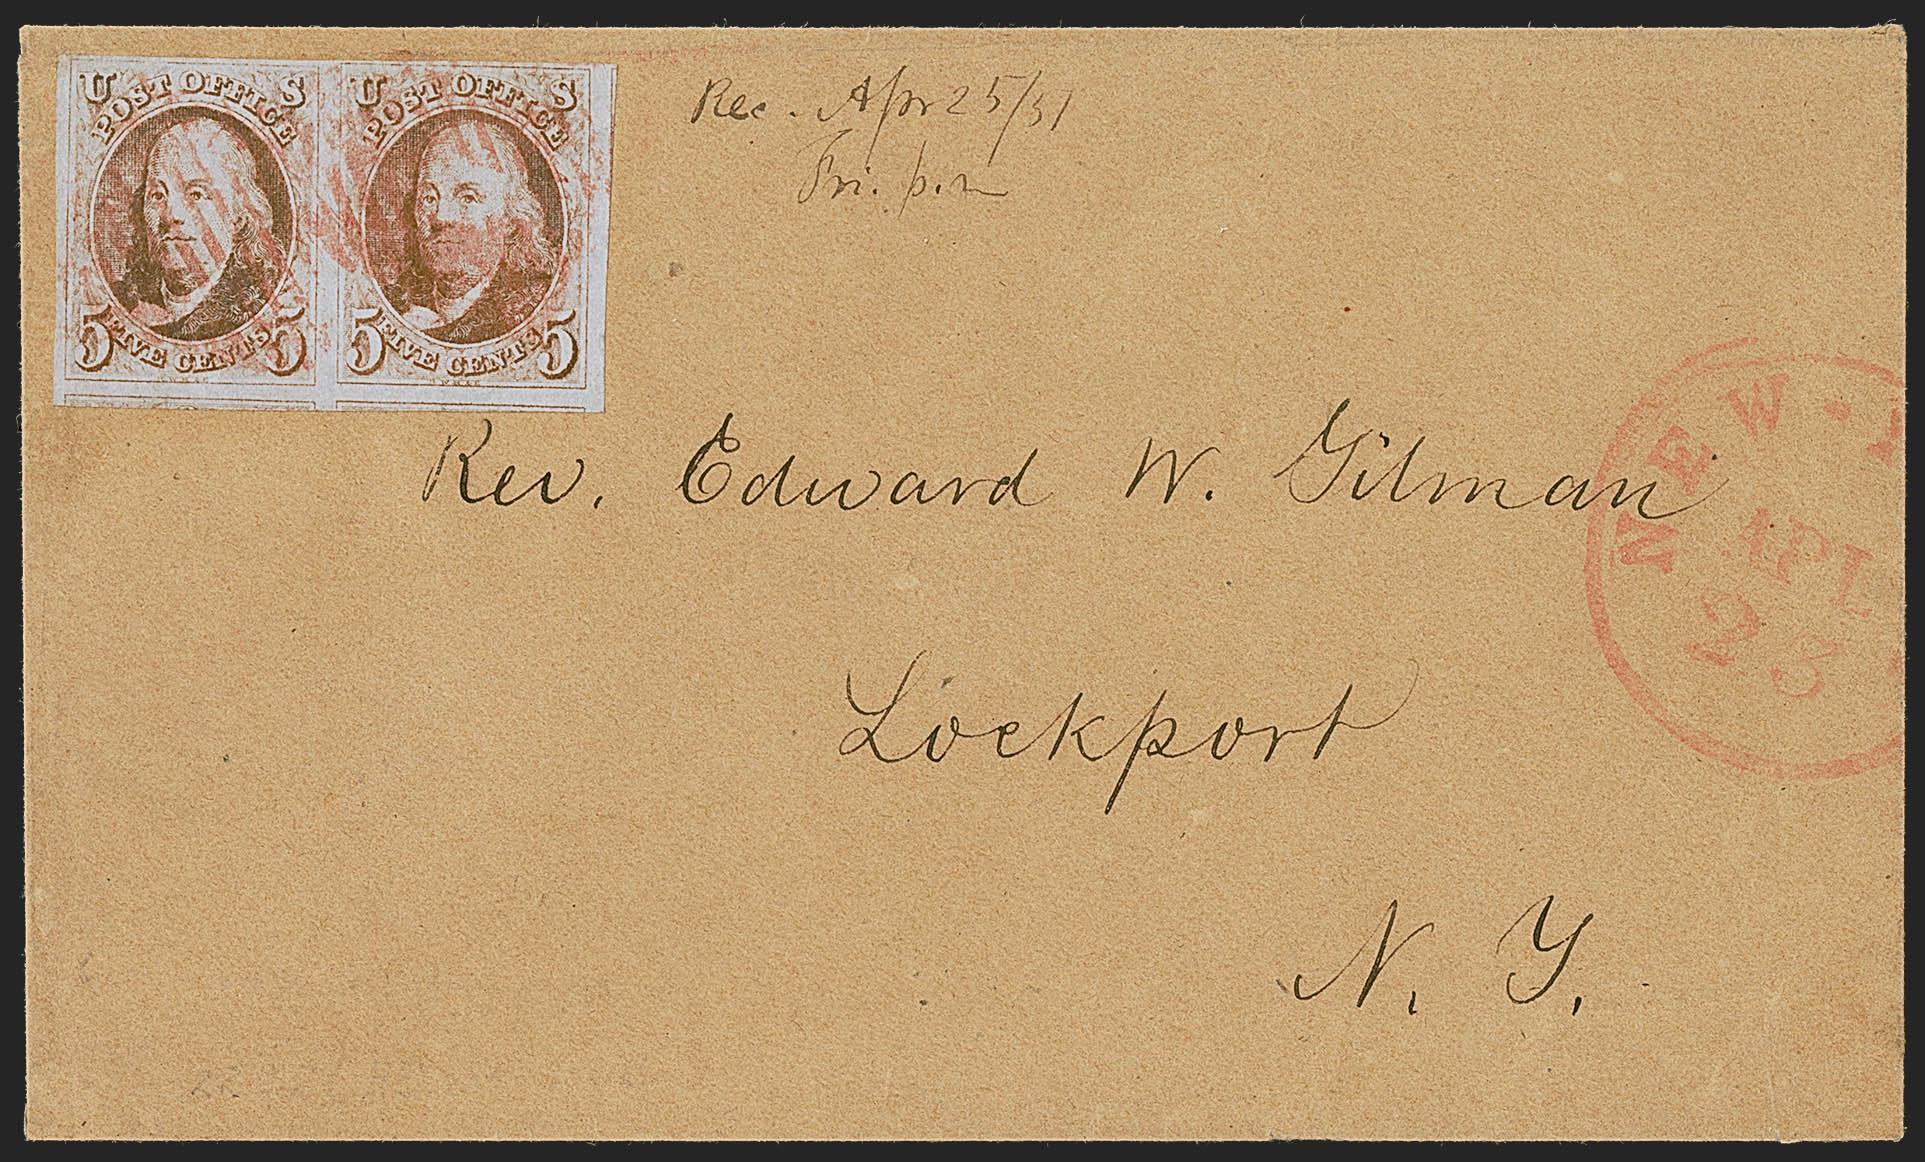 U S
POST OFFICE
5 FIVE CENTS 5
U S
POST OFFICE
5 FIVE CENTS 5
Rec. Apr 25/51
Fri. p.m
Rev. Edward W. Gilman
Lockport
N. Y.
NEW-Y
APL
23